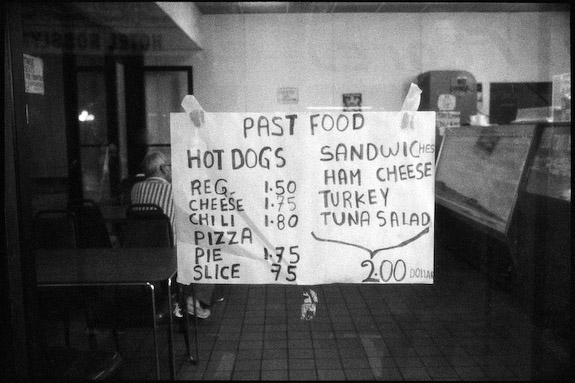 PAST FOOD
HOT DOGS
REG. 1.50
CHEESE 1.75
CHILI 1.80
PIZZA
PIE 1.75
SLICE 75
SANDWICHES
HAM CHEESE
TURKEY
TUNA SALAD
2.00 DOLLAR